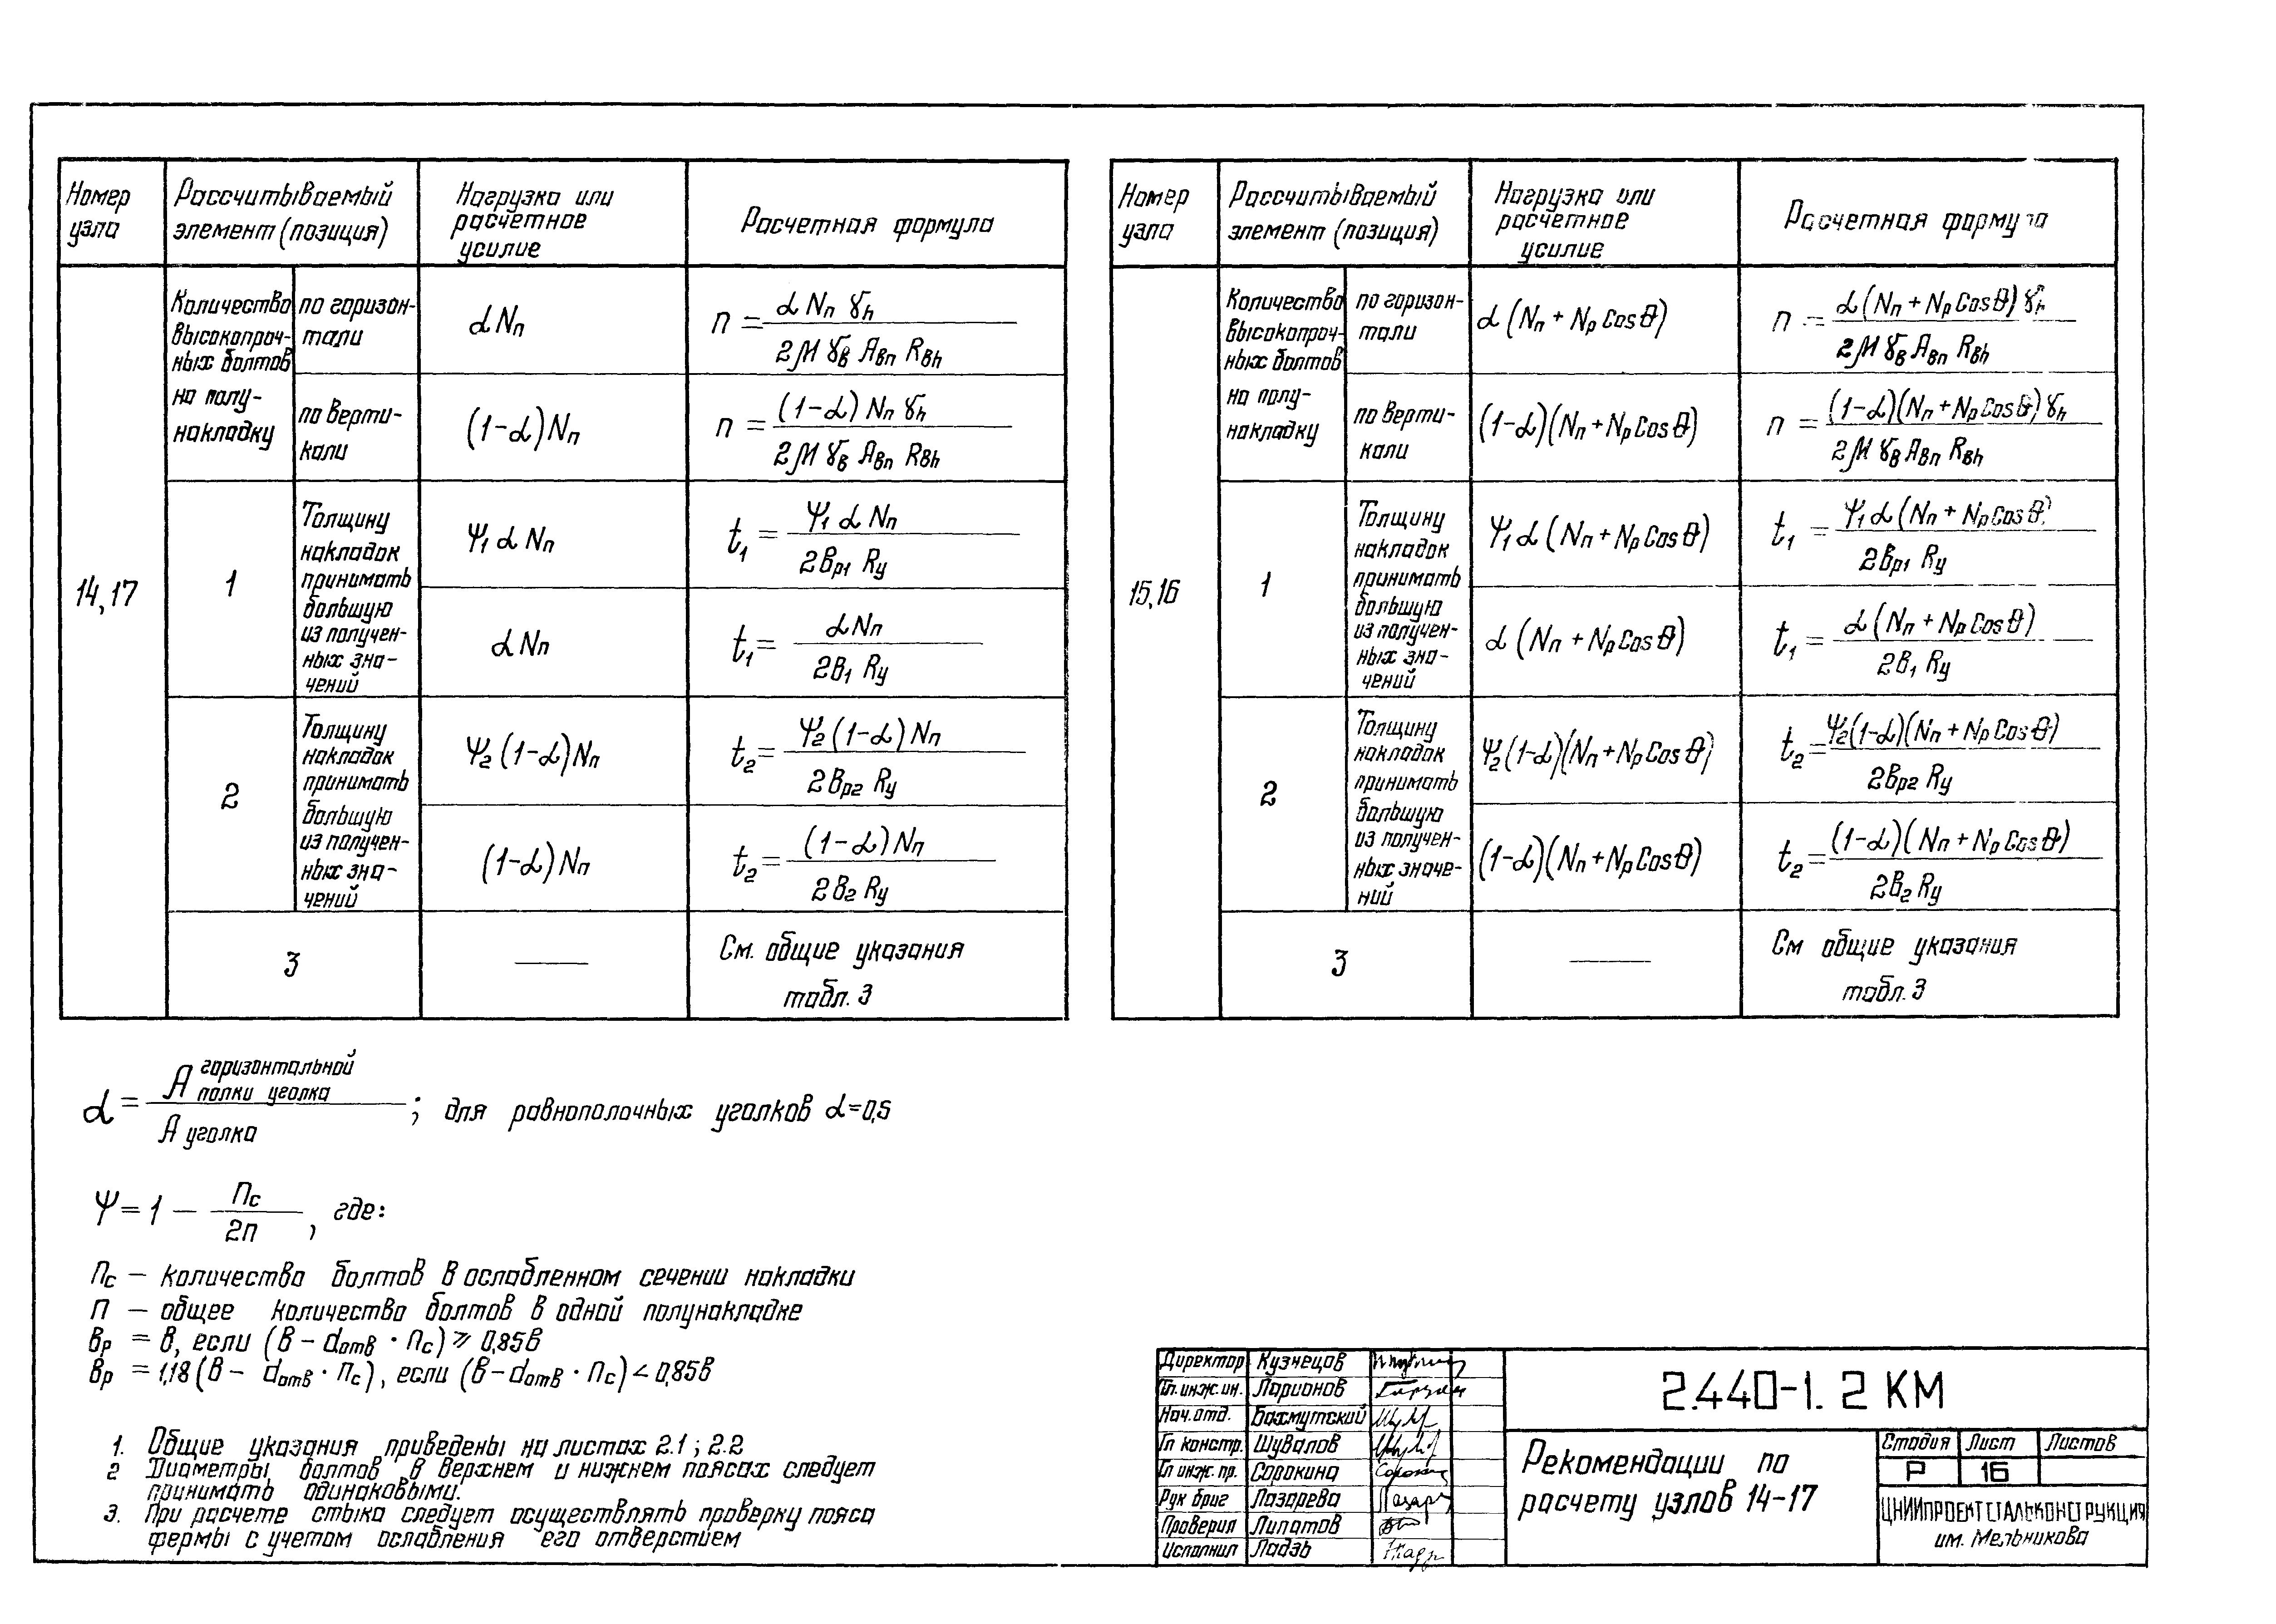 Номер узла
Рассчитываемый элемент (позиция)
Нагрузка или расчетное усилие
Расчетная формула
14,17
Количество высокопроч-
ных болтов
на полу-
накладку
по горизон-
тали
αNп
n = αNп γh / 2μ γв Aвп Rвh
по верти-
кали
(1-α)Nп
n = (1-α) Nп γh / 2μ γв Aвп Rвh
1
Толщину
накладок
принимать
большую
из получен-
ных зна-
чений
Ψ1 α Nп
t1 = Ψ1 α Nп / 2вр1 Rу
αNп
t1 = αNп / 2в1 Rу
2
Толщину
накладок
принимать
большую
из получен-
ных зна-
чений
Ψ2 (1-α)Nп
t2 = Ψ2 (1-α) Nп / 2вр2 Rу
(1-α)Nп
t2 = (1-α) Nп / 2в2 Rу
3
—
См. общие указания
табл. 3
Номер узла
Рассчитываемый элемент (позиция)
Нагрузка или расчетное усилие
Расчетная формула
15,16
Количество
высокопроч-
ных болтов
на полу-
накладку
по горизон-
тали
α (Nп + Nр Cos θ)
n = α (Nп + Nр Cos θ) γh / 2μ γв Aвп Rвh
по верти-
кали
(1-α)(Nп + Nр Cos θ)
n = (1-α)(Nп + Nр Cos θ) γh / 2μ γв Aвп Rвh
1
Толщину
накладок
принимать
большую
из получен-
ных зна-
чений
Ψ1 α (Nп + Nр Cos θ)
t1 = Ψ1 α (Nп + Nр Cos θ) / 2вр1 Rу
α (Nп + Nр Cos θ)
t1 = α (Nп + Nр Cos θ) / 2в1 Rу
2
Толщину
накладок
принимать
большую
из получен-
ных значе-
ний
Ψ2 (1-α)(Nп + Nр Cos θ)
t2 = Ψ2 (1-α)(Nп + Nр Cos θ) / 2вр2 Rу
(1-α)(Nп + Nр Cos θ)
t2 = (1-α)(Nп + Nр Cos θ) / 2в2 Rу
3
—
См общие указания
табл. 3
α = A горизонтальной полки уголка / A уголка ; для равнополочных уголков α=0,5
Ψ = 1 - nс / 2n , где:
nс – количество болтов в ослабленном сечении накладки
n – общее количество болтов в одной полунакладке
вр = в, если (в – dотв · nс) ⩾ 0,85в
вр = 1,18 (в – dотв · nс), если (в – dотв · nс) < 0,85в
1. Общие указания приведены на листах 2.1 ; 2.2
2 Диаметры болтов в верхнем и нижнем поясах следует
принимать одинаковыми.
3. При расчете стыка следует осуществлять проверку пояса
фермы с учетом ослабления его отверстием
Директор Кузнецов
Гл. инж. ин. Ларионов
Нач. отд. Бахмутский
Гл констр. Шувалов
Гл инж. пр. Сорокина
Рук бриг Лазарева
Проверил Липатов
Исполнил Ладзь
2.440-1. 2 КМ
Рекомендации по
расчету узлов 14-17
Стадия Лист Листов
Р 16
ЦНИИПРОЕКТСТАЛЬКОНСТРУКЦИЯ
им. Мельникова